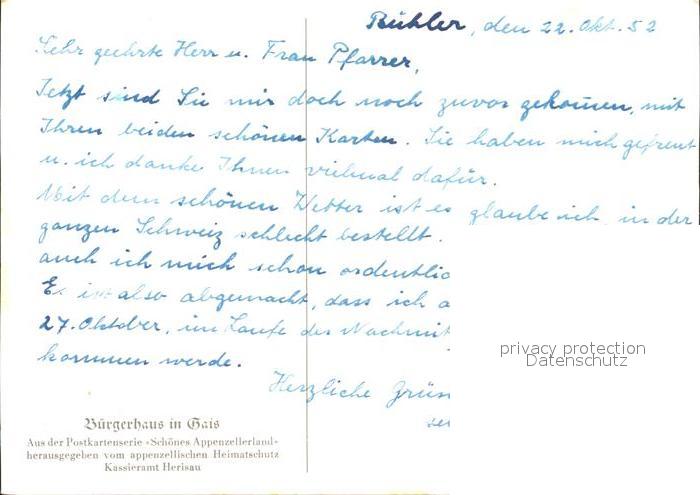 Bühler, den 22. Okt. 52
Sehr geehrte Herr u. Frau Pfarrer,
Jetzt sind Sie mir doch noch zuvor gekommen, mit
Ihren beiden schönen Karten. Sie haben mich gefreut
u. ich danke Ihnen vielmal dafür.
Mit dem schönen Wetter ist es glaube ich in der
ganzen Schweiz schlecht bestellt.
auch ich mich schon ordentlic
Es ist also abgemacht, dass ich a
27. Oktober, im Laufe des Nachmit
kommen werde.
Herzliche Grüs
privacy protection
Datenschutz
Bürgerhaus in Gais
Aus der Postkartenserie «Schönes Appenzellerland»
herausgegeben vom appenzellischen Heimatschutz
Kassieramt Herisau